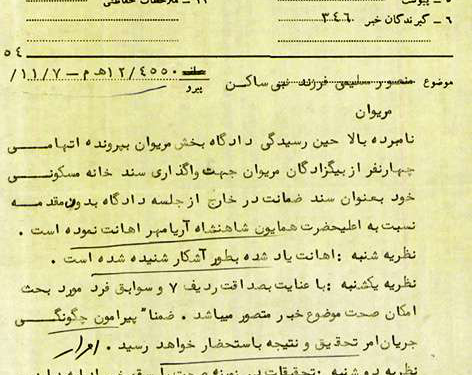 ۵ ـ پیوست
۱۱ ـ ملاحظات حفاظتی
۶ ـ گیرندگان خبر ۳۴۶۰
۵۴
۱۲/۴۵۵۰ ه م – ۱۱/۷/
پیرو
موضوع منصور سلیمی فرزند نبی ساکن
مریوان
نامبرده بالا حین رسیدگی دادگاه بخش مریوان بپرونده اتهامی
چهارنفر از بیگزادگان مریوان جهت واگذاری سند خانه مسکونی
خود بعنوان سند ضمانت در خارج از جلسه دادگاه بدون مقدمه
نسبت به اعلیحضرت همایون شاهنشاه آریامهر اهانت نموده است .
نظریه شنبه : اهانت یاد شده بطور آشکار شنیده شده است .
نظریه یکشنبه : با عنایت بصداقت ردیف ۷ و سوابق فرد مورد بحث
امکان صحت موضوع خبر متصور میباشد . ضمنا" پیرامون چگونگی
جریان امر تحقیق و نتیجه باستحضار خواهد رسید .
نظریه دوشنبه : تحقیقات در زمینه صحت